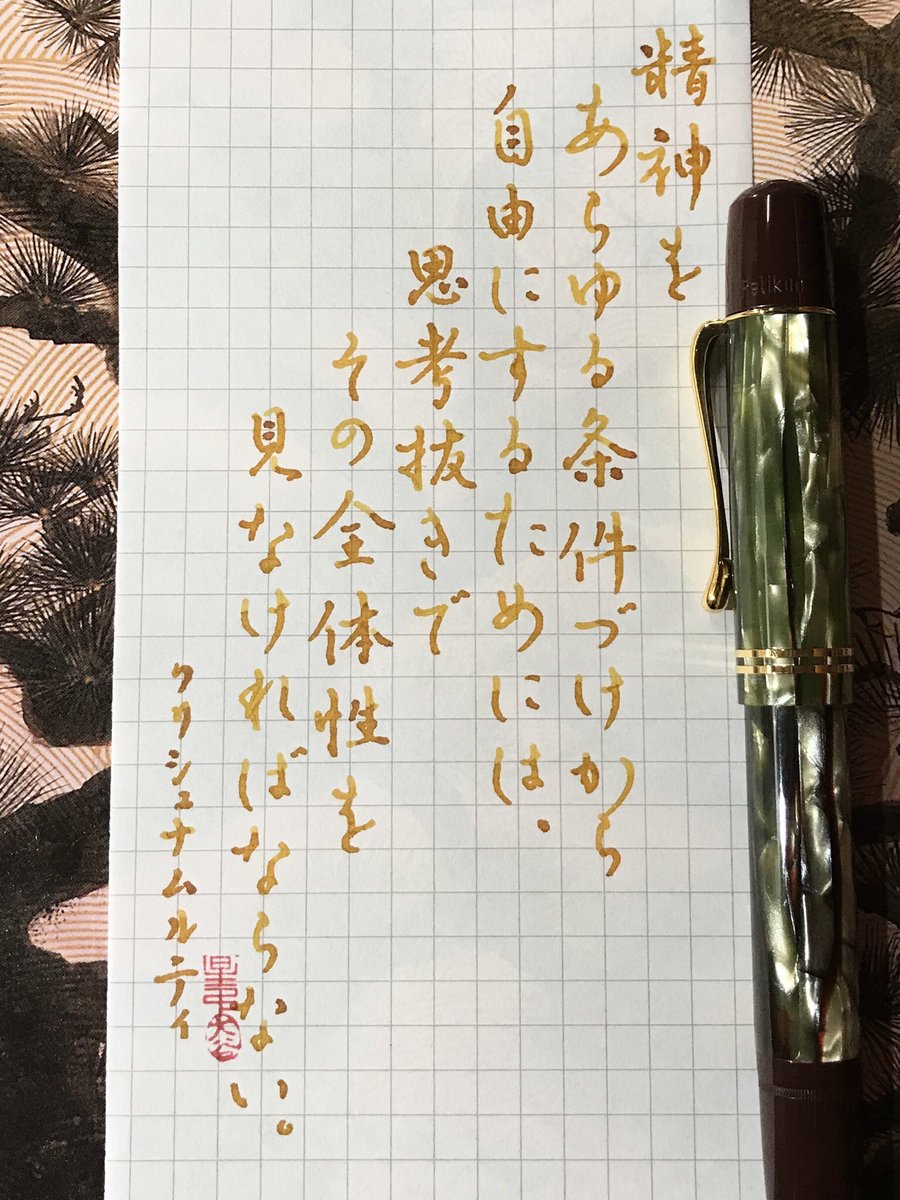 精神を
あらゆる条件づけから
自由にするためには、
思考抜きで
その全体性を
見なければならない。
クリシュナムルティ
Pelikan